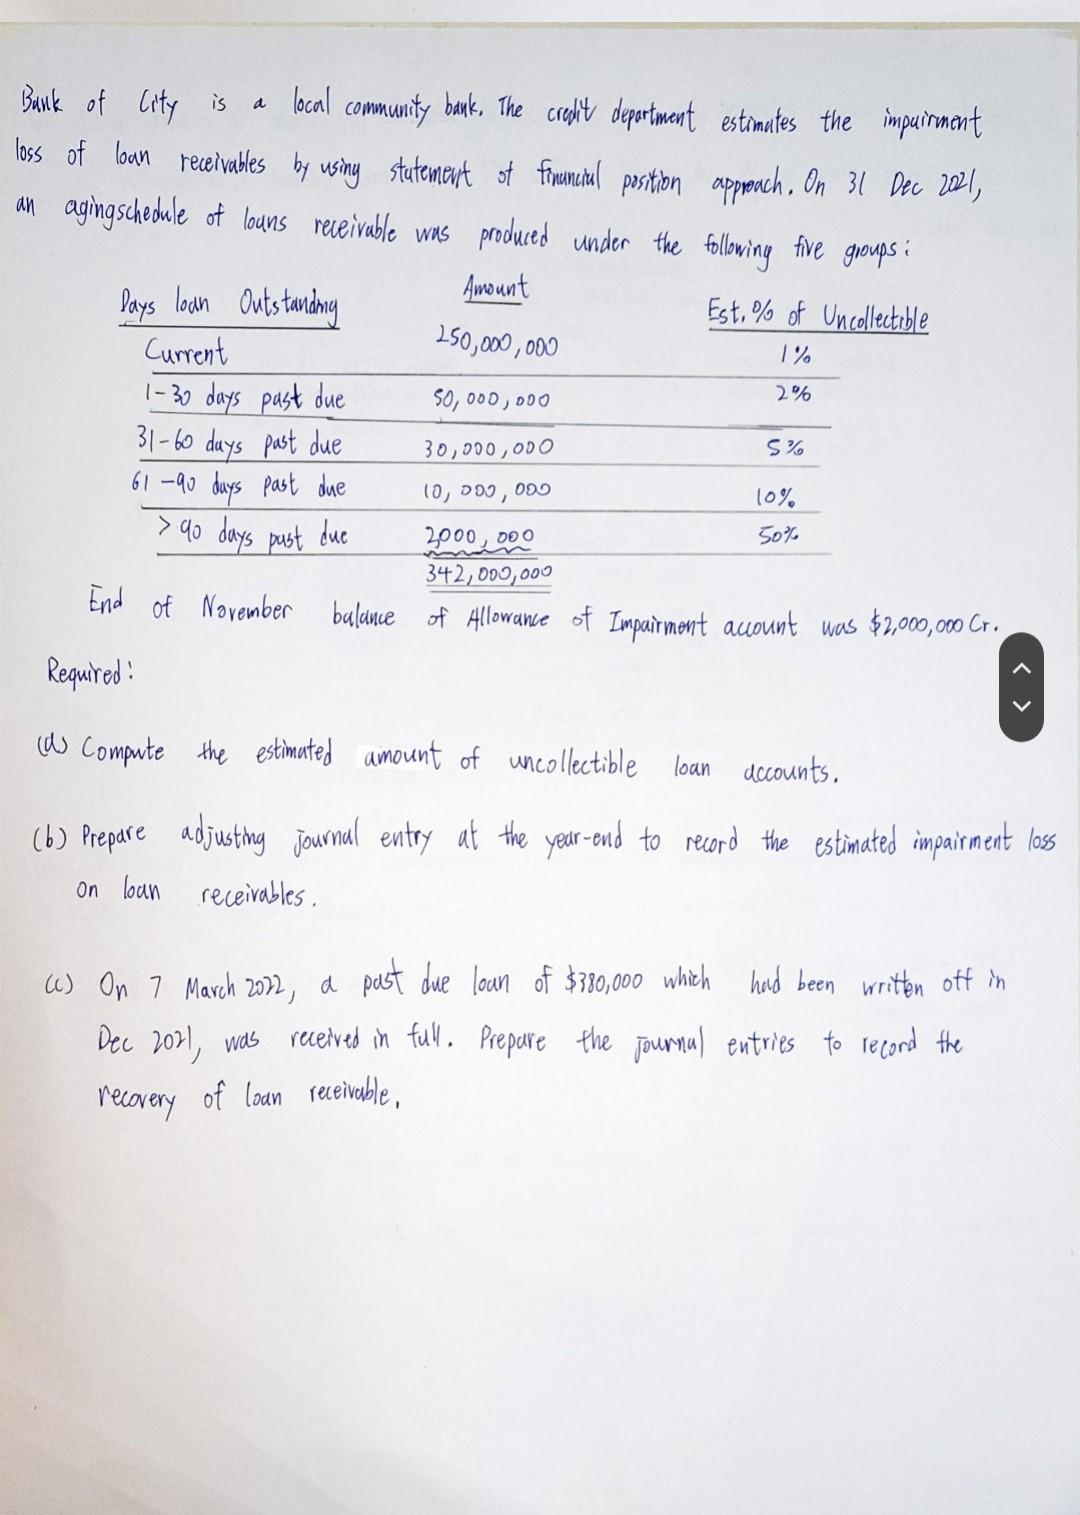 Bank of City is a local community bank. The credit department estimates the impairment
loss of loan receivables by using statement of financial position approach. On 31 Dec 2021,
an agingschedule of loans receivable was produced under the following five groups:
Days loan Outstanding Amount Est. % of Uncollectible
Current 250,000,000 1%
1-30 days past due 50,000,000 2%
31-60 days past due 30,000,000 5%
61-90 days past due 10,000,000 10%
>90 days past due 2,000,000 50%
342,000,000
End of November balance of Allowance of Impairment account was $2,000,000 Cr.
Required:
(a) Compute the estimated amount of uncollectible loan accounts.
(b) Prepare adjusting journal entry at the year-end to record the estimated impairment loss
on loan receivables.
(c) On 7 March 2022, a past due loan of $380,000 which had been written off in
Dec 2021, was received in full. Prepare the journal entries to record the
recovery of loan receivable.